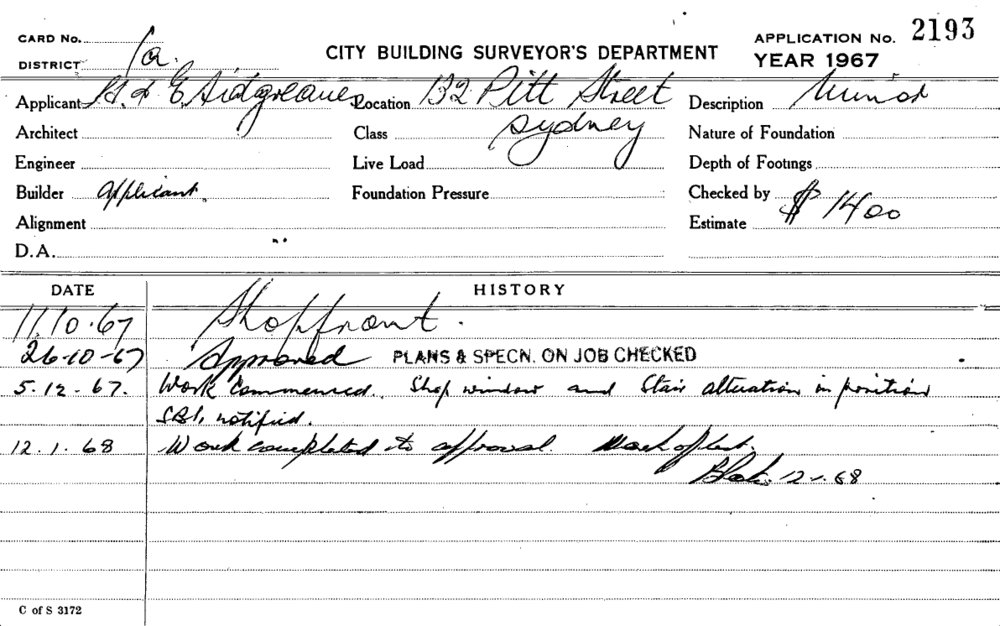 CARD No.
APPLICATION No. 2193
DISTRICT 1a.
CITY BUILDING SURVEYOR'S DEPARTMENT
YEAR 1967
Applicant & E Sidgreaves Location 132 Pitt Street Description Minor
Architect Class Sydney Nature of Foundation
Engineer Live Load Depth of Footings
Builder Applicant. Foundation Pressure Checked by
Alignment Estimate $ 1400
D.A.
DATE HISTORY
11.10.67 Shopfront.
26-10-67 Approved PLANS & SPECN. ON JOB CHECKED
5.12.67. Work Commenced. Shop window and Stair alteration in position
notified.
12.1.68 Work completed to approval.
68
C of S 3172